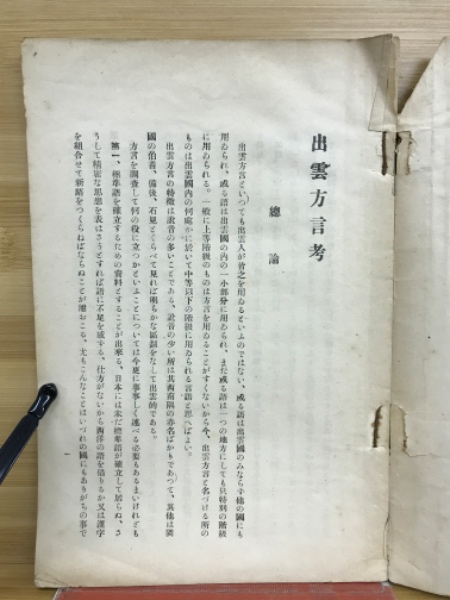 出雲方言考
總論
出雲方言といつても出雲人が皆之を用ゐるといふのではない、或る語は出雲國のみならず他の國にも
用ゐられ、或る語は出雲國の内の一小部分に用ゐられ、また或る語は一つの地方にしても只特別の階級
に用ゐられる。一般に上等階級のものは方言を用ゐることがすくないから今、出雲方言と名づける所の
ものは出雲國内の何處かに於いて中等以下の階級に用ゐられる言語と思へばよい。
出雲方言の特徴は訛音の多いことである、訛音の少い所は其西南隅の赤名ばかりであつて、其他は隣
國の伯耆、備後、石見とくらべて見れば明らかな區別をなして出雲的である。
方言を調査して何の役に立つかといふことについては今更に事事しく述べる必要もあるまいけれども
第一、標準語を確立するための資料とすることが出來る、日本には未だ標準語が確立して居らぬ、さ
うして精密な思想を表はさうとすれば語に不足を感ずる、仕方がないから西洋の語を借りるか又は漢字
を組合せて新語をつくらねばならぬことが屢おこる、尤もこんなことはいづれの國にもありがちの事で
一